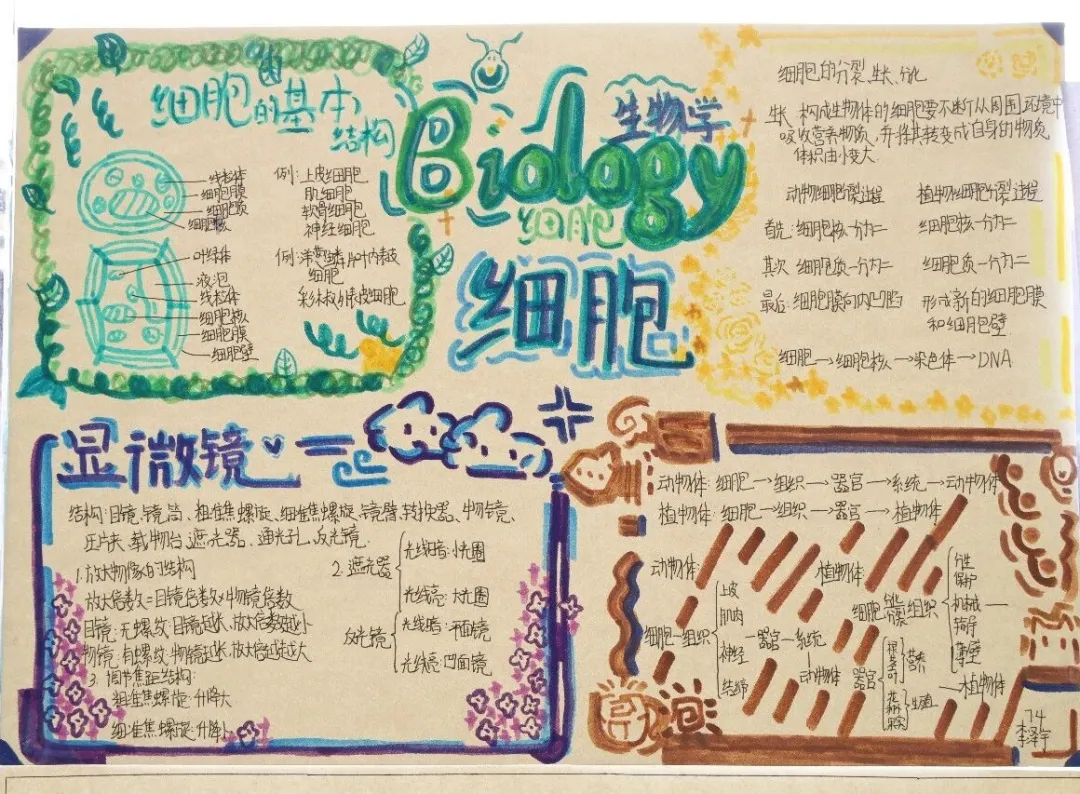 细胞的基本
结构
线粒体
细胞膜
细胞质
细胞核
例:上皮细胞
肌细胞
软骨细胞
神经细胞
叶绿体
液泡
线粒体
细胞核
细胞膜
细胞壁
例:洋葱鳞片叶内表皮
细胞
生物学
Biology
细胞
细胞
细胞的分裂、生长、分化
生长:构成生物体的细胞要不断从周围环境中
吸收营养物质,并将其转变成自身的物质,
体积由小变大.
动物细胞分裂过程 植物细胞分裂过程
首先:细胞核一分为二 细胞核一分为二
其次 细胞质一分为二 细胞质一分为二
最后:细胞膜向内凹陷 形成新的细胞膜
和细胞壁
细胞→细胞核→染色体→DNA
显微镜
结构:目镜、镜筒、粗准焦螺旋、细准焦螺旋、镜臂、转换器、物镜、
压片夹、载物台、遮光器、通光孔、反光镜.
1.放大物像的结构
放大倍数=目镜倍数×物镜倍数
目镜:无螺纹,目镜越长,放大倍数越小
物镜:有螺纹,物镜越长,放大倍越大
3.调节焦距结构:
粗准焦螺旋:升降大
细准焦螺旋:升降小
2.遮光器
光线暗:大光圈
反光镜
光线暗:平面镜
光线亮:凹面镜
动物体:细胞→组织→器官→系统→动物体
植物体:细胞→组织→器官→植物体
动物体:
细胞—组织
上皮
肌肉
神经
结缔
—器官—系统
动物体
植物体
细胞
组织
分生
保护
机械
输导
器官
营养
生殖
植物体